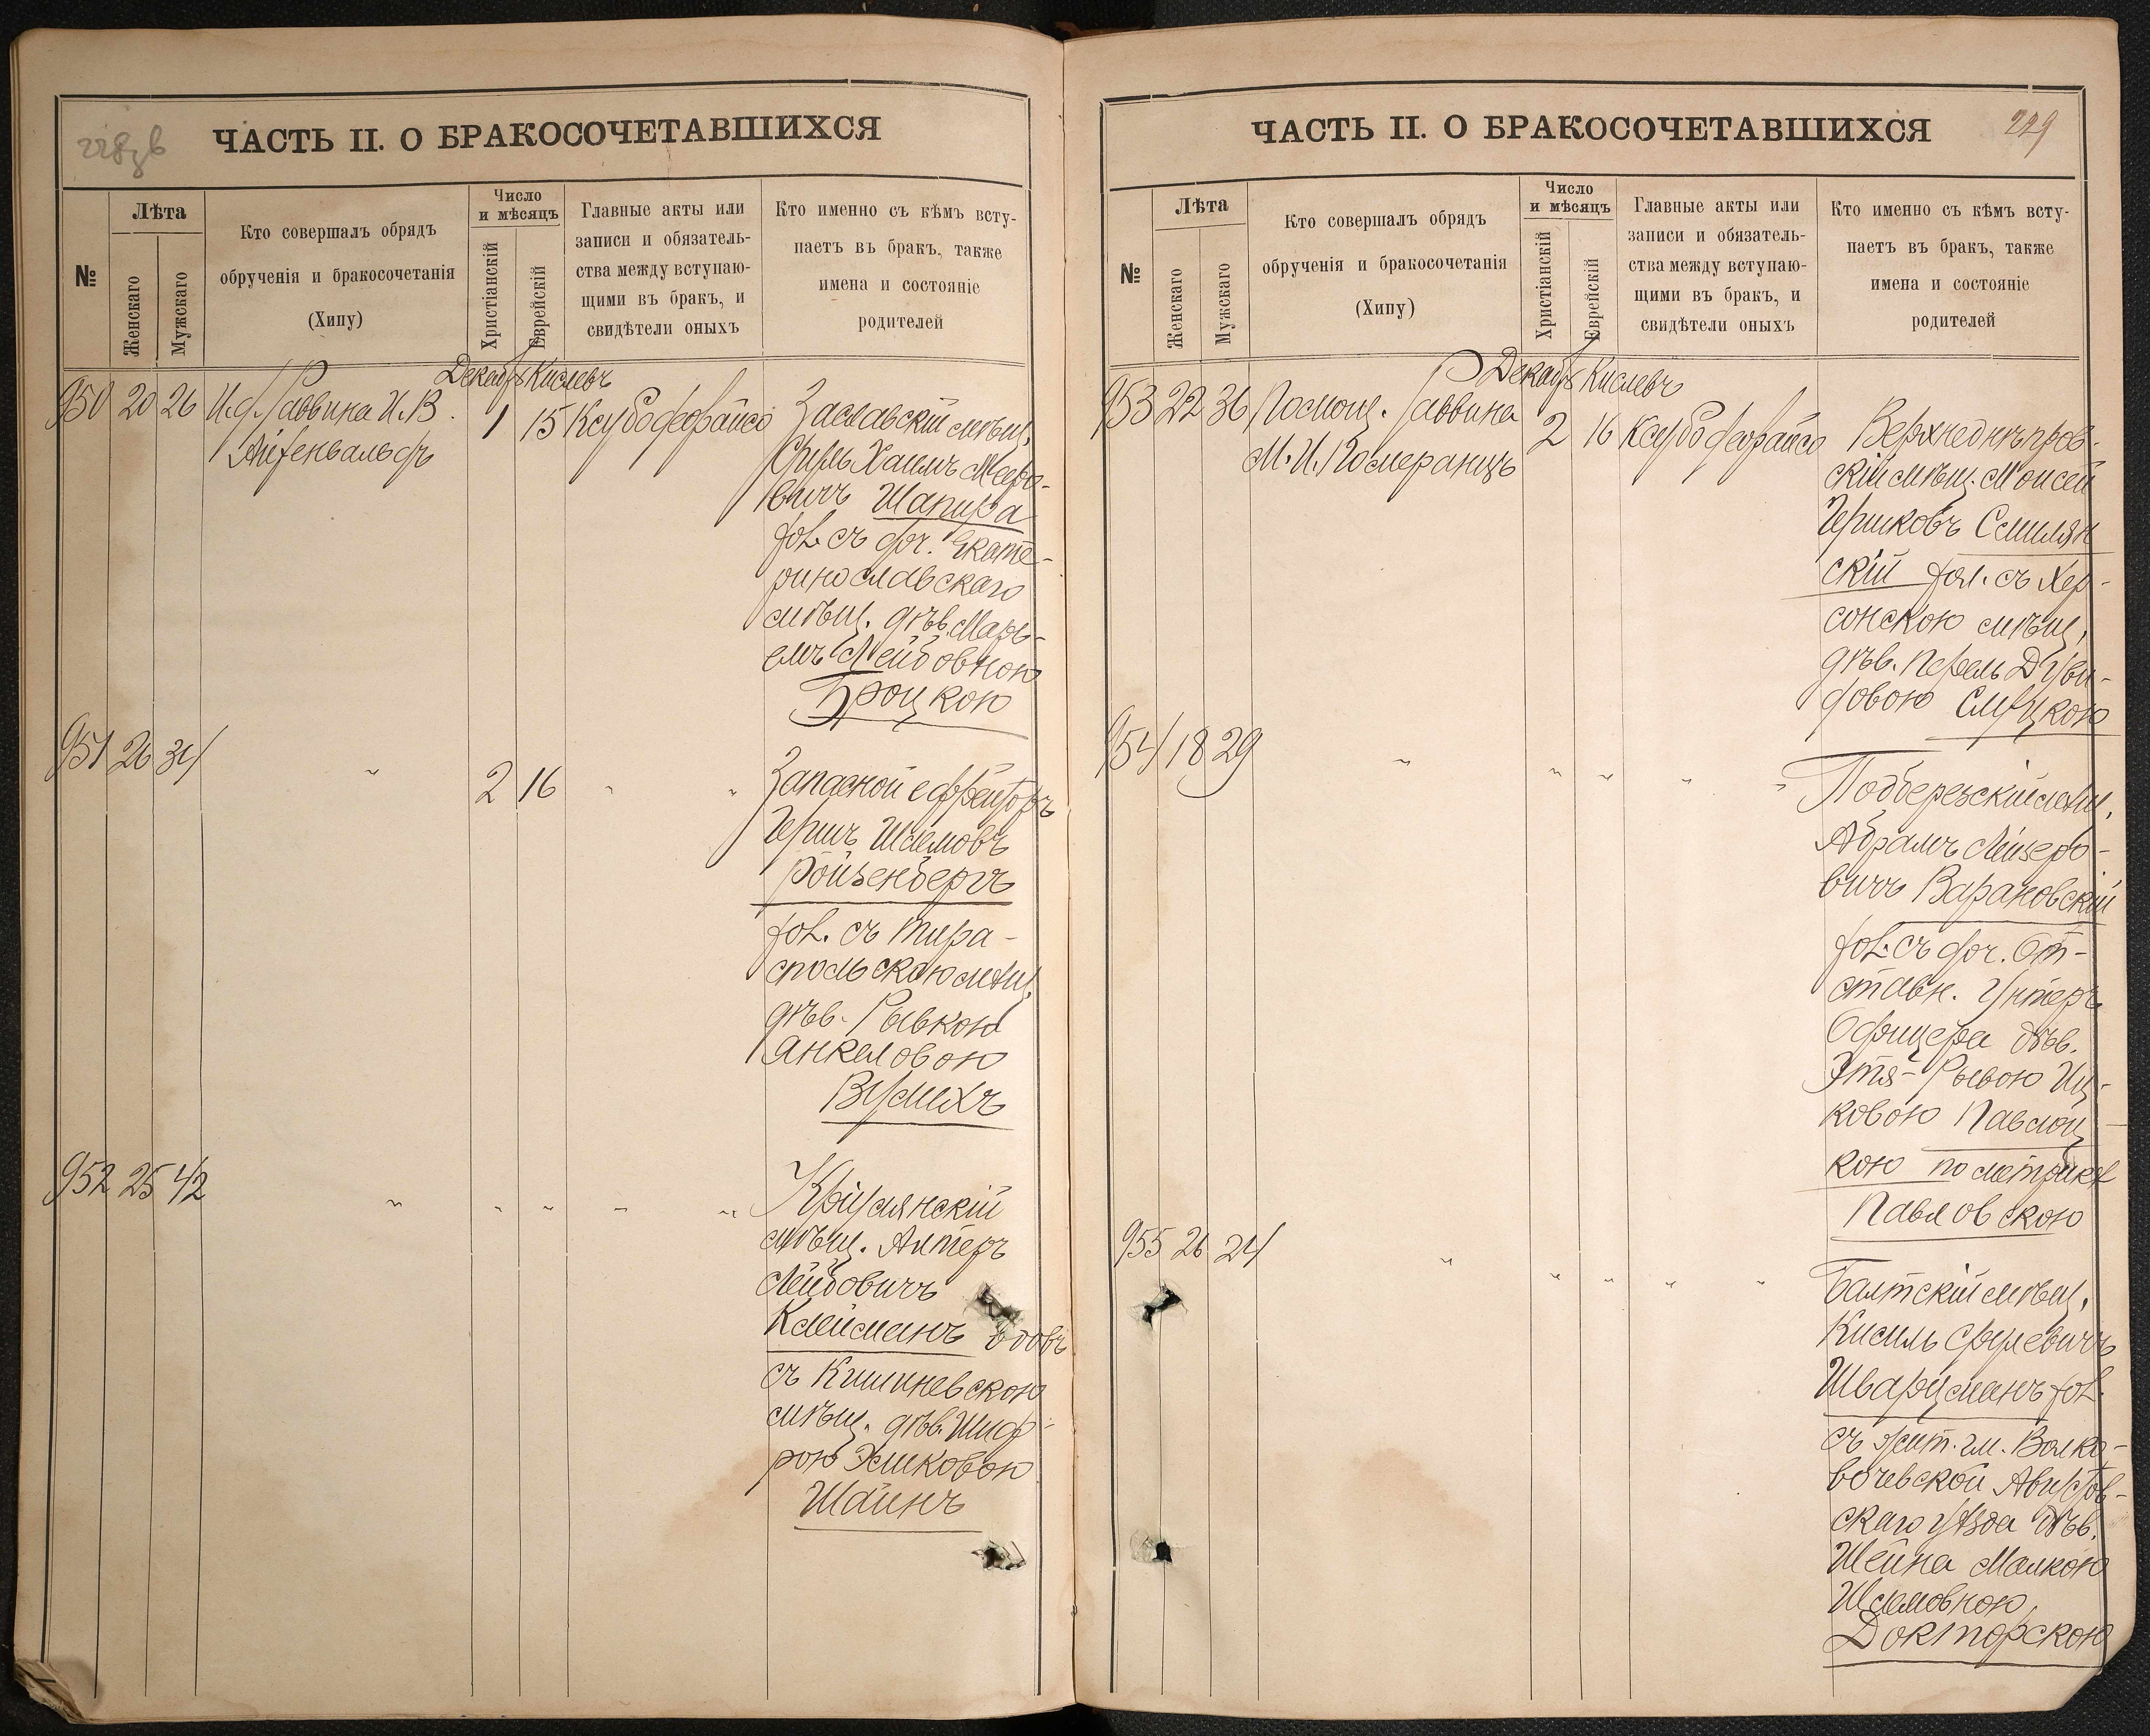 228 зв
ЧАСТЬ II. О БРАКОСОЧЕТАВШИХСЯ
№
Лѣта
Женскаго
Мужскаго
Кто совершалъ обрядъ
обрученія и бракосочетанія
(Хипу)
Число
и мѣсяцъ
Христіанскій
Еврейскій
Главные акты или
записи и обязатель-
ства между вступаю-
щими въ бракъ, и
свидѣтели оныхъ
Кто именно съ кѣмъ всту-
паетъ въ бракъ, также
имена и состояніе
родителей
Декабрь Кислевъ
950 20 26 И.д. Раввина И.В.
Айзенвальдъ
1 15
Заславскій мѣщ.
Сруль Хаимъ Мееро-
вичъ Шапира
хол. съ доч. Екате-
ринославскаго
мѣщ. дѣв. Марь-
емъ Лейбовною
Броцкою
951 26 34 " 2 16 " "
Запасной ефрейторъ
Гершъ Шлемовъ
Ройзенбергъ
хол. съ Тира-
спольскою мѣщ.
дѣв. Рывкою
Янкеловою
Вулихъ
952 25 42 " " " " "
Криулянскій
мѣщ. Алтеръ
Лейбовичъ
Клейманъ вдовъ
съ Кишиневскою
мѣщ. дѣв. Шиф-
рою Хмиковою
Шаинъ
ЧАСТЬ II. О БРАКОСОЧЕТАВШИХСЯ
229
№
Лѣта
Женскаго
Мужскаго
Кто совершалъ обрядъ
обрученія и бракосочетанія
(Хипу)
Число
и мѣсяцъ
Христіанскій
Еврейскій
Главные акты или
записи и обязатель-
ства между вступаю-
щими въ бракъ, и
свидѣтели оныхъ
Кто именно съ кѣмъ всту-
паетъ въ бракъ, также
имена и состояніе
родителей
Декабрь Кислевъ
953 22 36 Помощ. Раввина
М.И. Померанцъ
2 16
Верхнеднѣпров-
скій мѣщ. Моисей
Гершковъ Смилян
скій хол. съ Хер-
сонскою мѣщ.
дѣв. Перель Дуви-
довою Слуцкою
954 18 29 " " " " "
Подберезскій мѣщ.
Абрамъ Лейзеро-
вичъ Варановскій
хол. съ доч. От-
ставн. Унтеръ
Офицера дѣв.
Этя-Рывою Иц-
ковою Павлоц
кою по метрикѣ
Павловскою
955 26 24 " " " " "
Балтскій мѣщ.
Кисиль Срулевичъ
Шварцманъ хол.
съ жит. гм. Волко-
вочевской Августов-
скаго уѣзда дѣв.
Шейна Малкою
Шлемовною
Докторскою